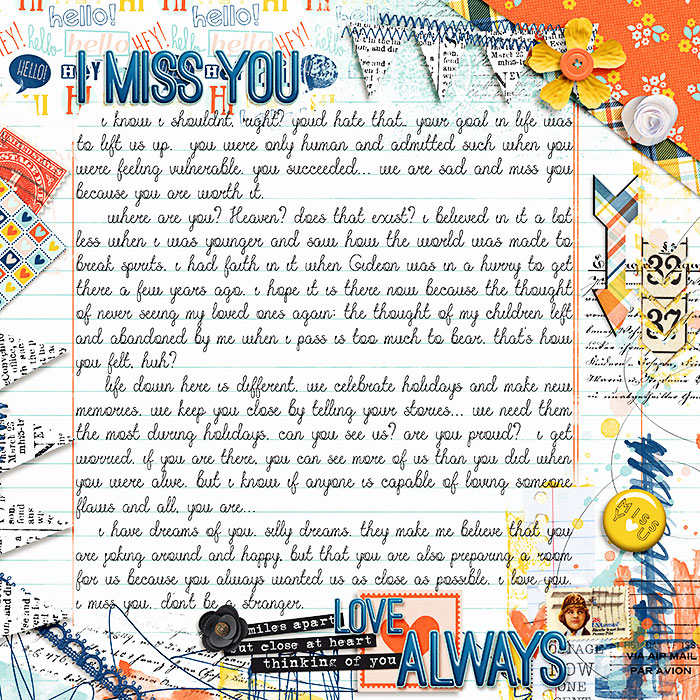 hello!
HEY!
hello
HEY!
hello
HEY!
HELLO!
I MISS YOU
i know i shouldnt, right? youd hate that.. your goal in life was
to lift us up. you were only human and admitted such when you
were feeling vulnerable. you succeeded... we are sad and miss you
because you are worth it.
where are you? Heaven? does that exist? i believed in it a lot
less when i was younger and saw how the world was made to
break spirits. i had faith in it when Gideon was in a hurry to get
there a few years ago. i hope it is there now because the thought
of never seeing my loved ones again; the thought of my children left
and abandoned by me when i pass is too much to bear. that's how
you felt, huh?
life down here is different. we celebrate holidays and make new
memories. we keep you close by telling your stories... we need them
the most during holidays. can you see us? are you proud? i get
worried. if you are there, you can see more of us than you did when
you were alive. but i know if anyone is capable of loving someone
flaws and all, you are...
i have dreams of you. silly dreams. they make me believe that you
are joking around and happy, but that you are also preparing a room
for us because you always wanted us as close as possible. i love you.
i miss you. dont be a stranger.
32
37
MISS
U
miles apart
but close at heart
thinking of you
LOVE
ALWAYS
VIA AIR MAIL
PAR AVION